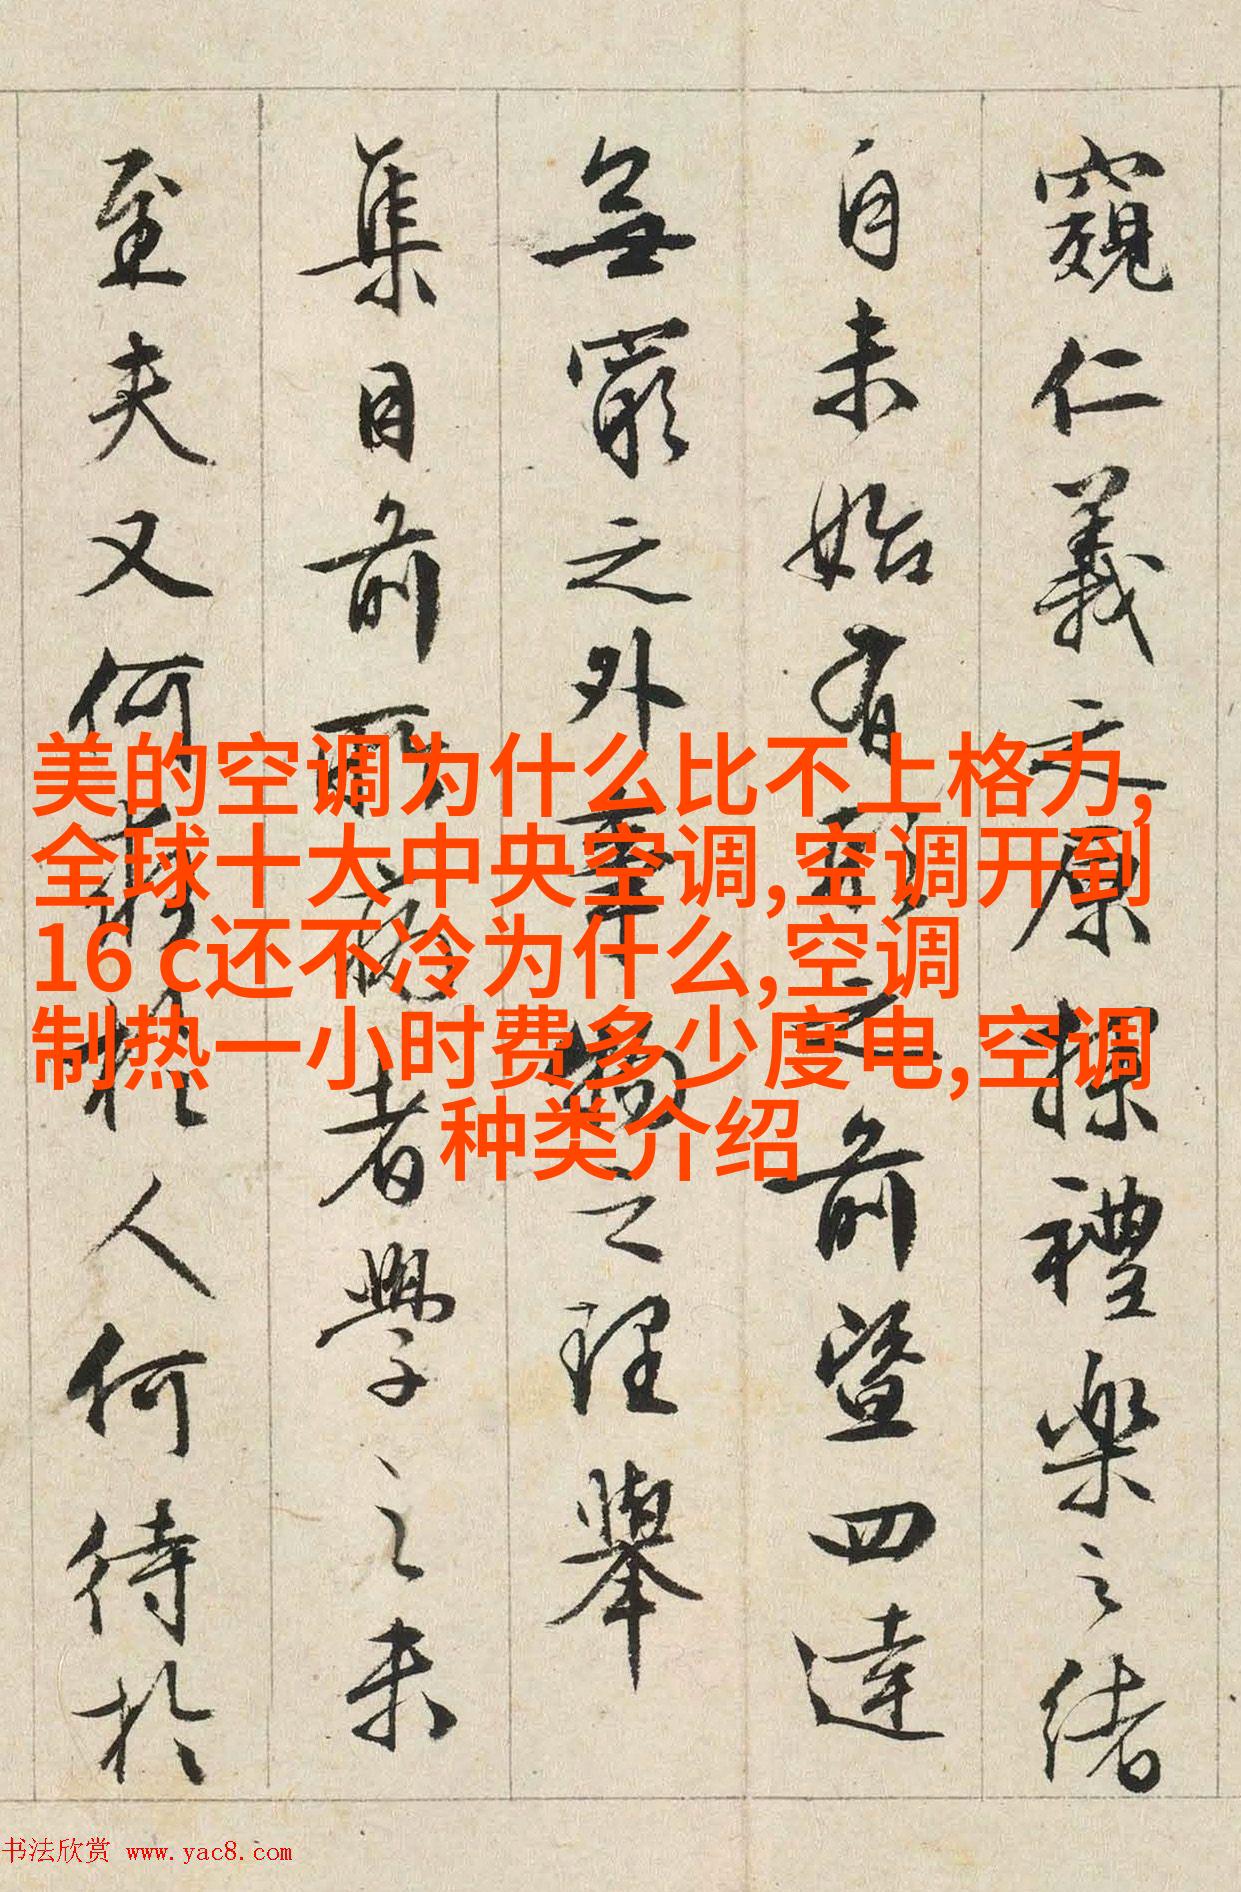 窺仁義之原探禮樂之緒
自未始有形之前暨四達
無窮之外事物之理舉
集目前所病者學之未
至夫又何於人何待於
美的空调为什么比不上格力,
全球十大中央空调,空调开到
16 c还不冷为什么,空调
制热一小时费多少度电,空调
种类介绍
书法欣赏 www.yac8.com